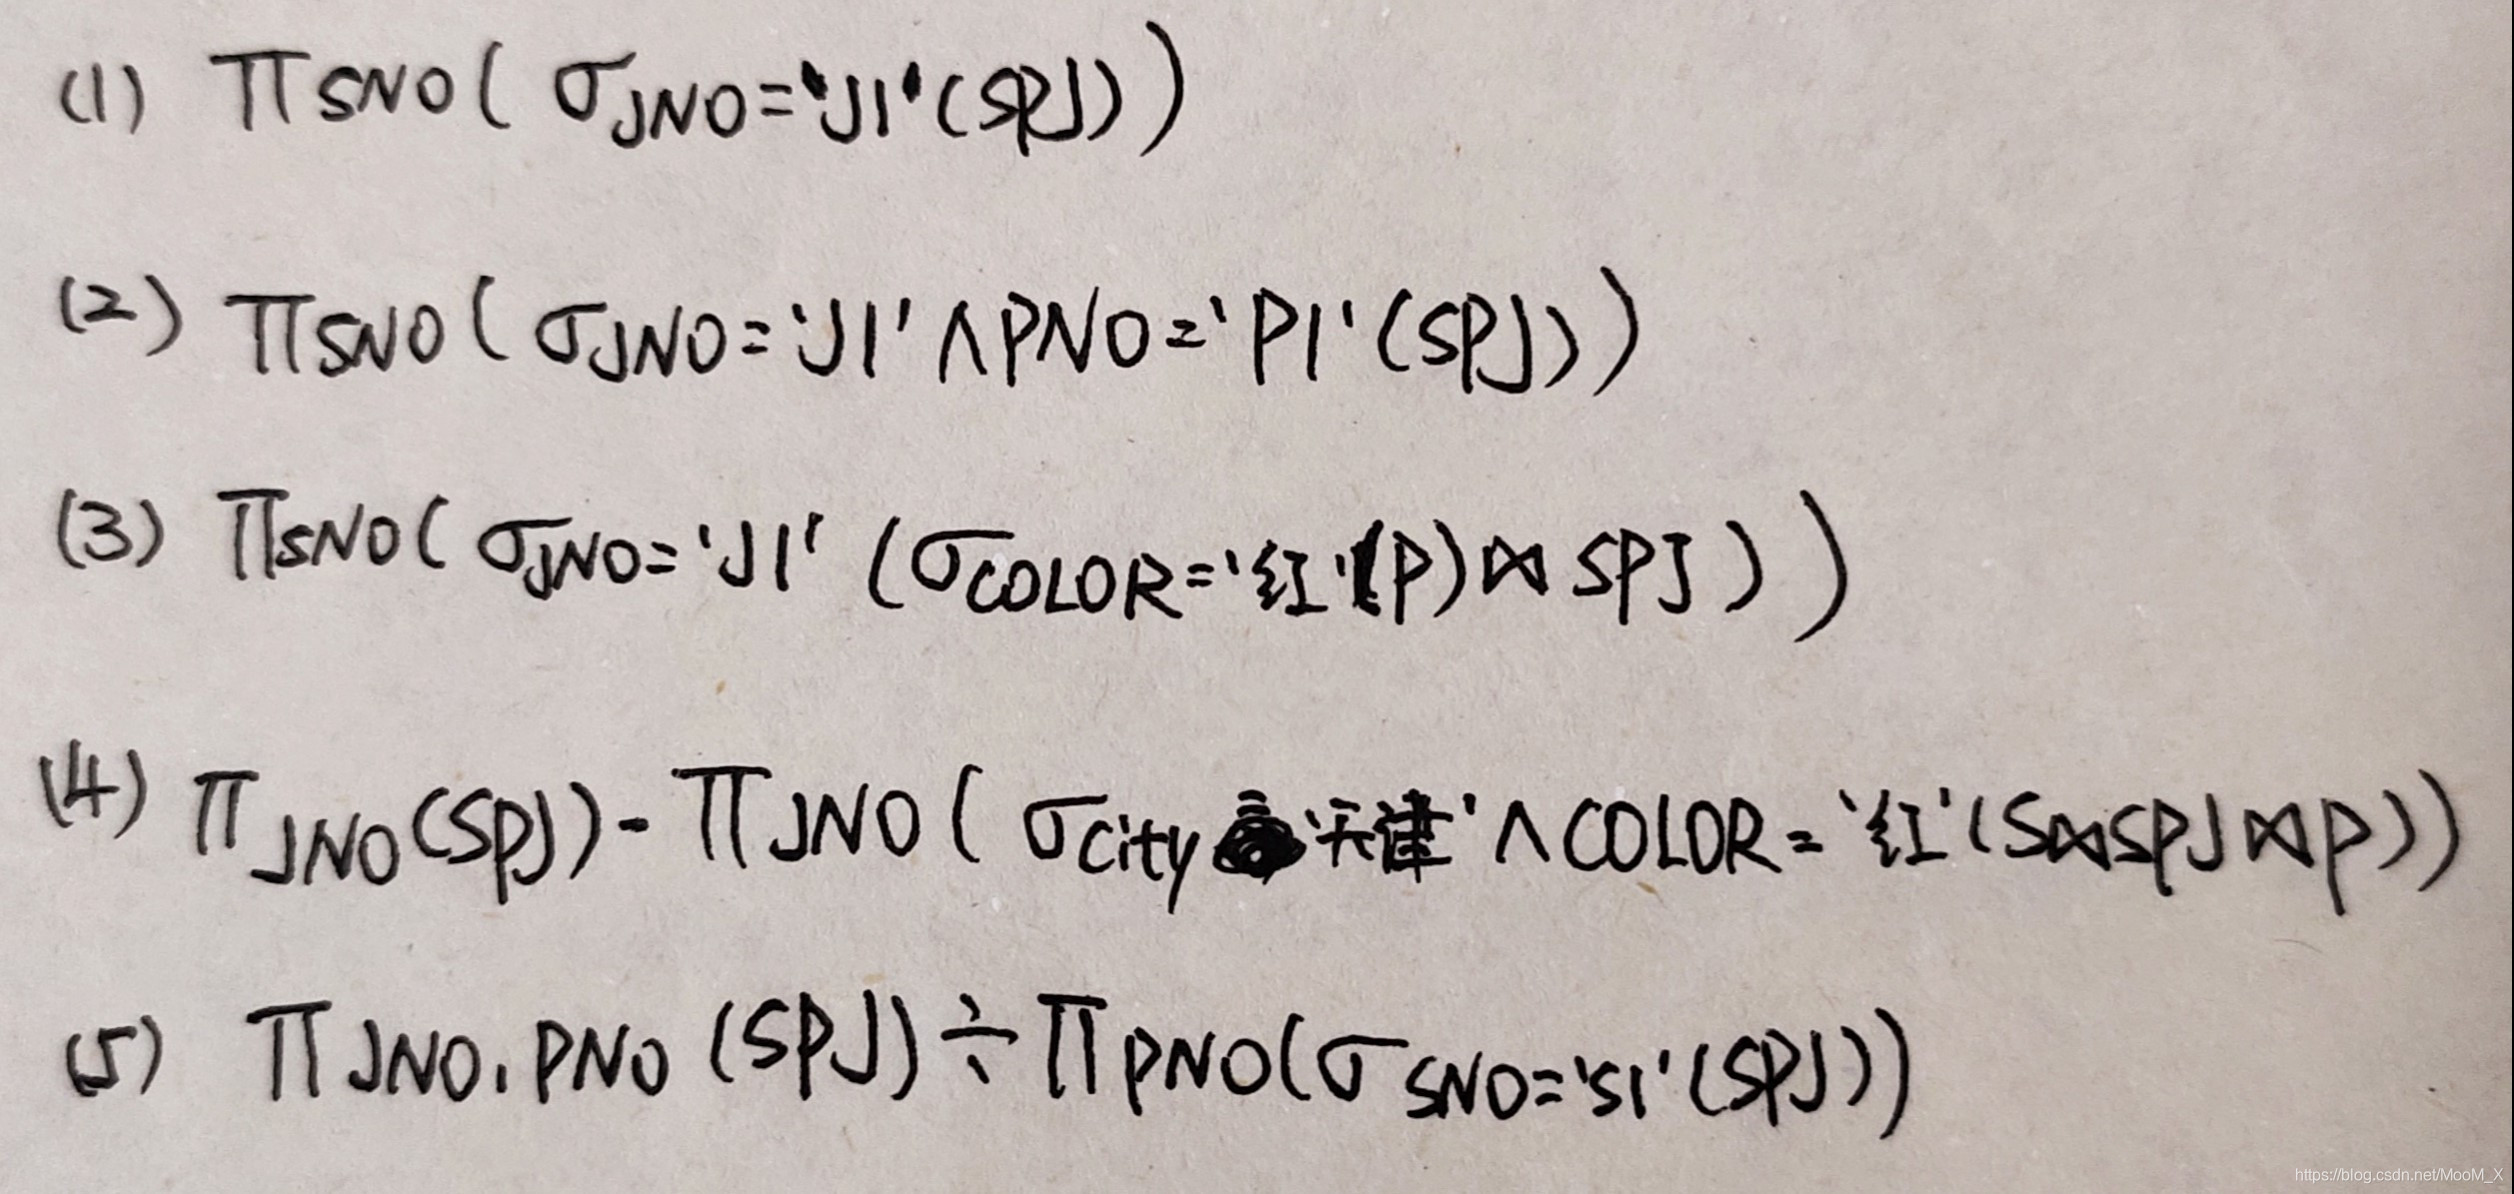 (1) πSNO(σJNO='J1'(SPJ))
(2) πSNO(σJNO='J1'∧PNO='P1'(SPJ))
(3) πSNO(σJNO='J1'(σCOLOR='红'(P)⋈SPJ))
(4) πJNO(SPJ)-πJNO(σCity '天津'∧COLOR='红'(S⋈SPJ⋈P))
(5) πJNO,PNO(SPJ)÷πPNO(σSNO='S1'(SPJ))
https://blog.csdn.net/MooM_X